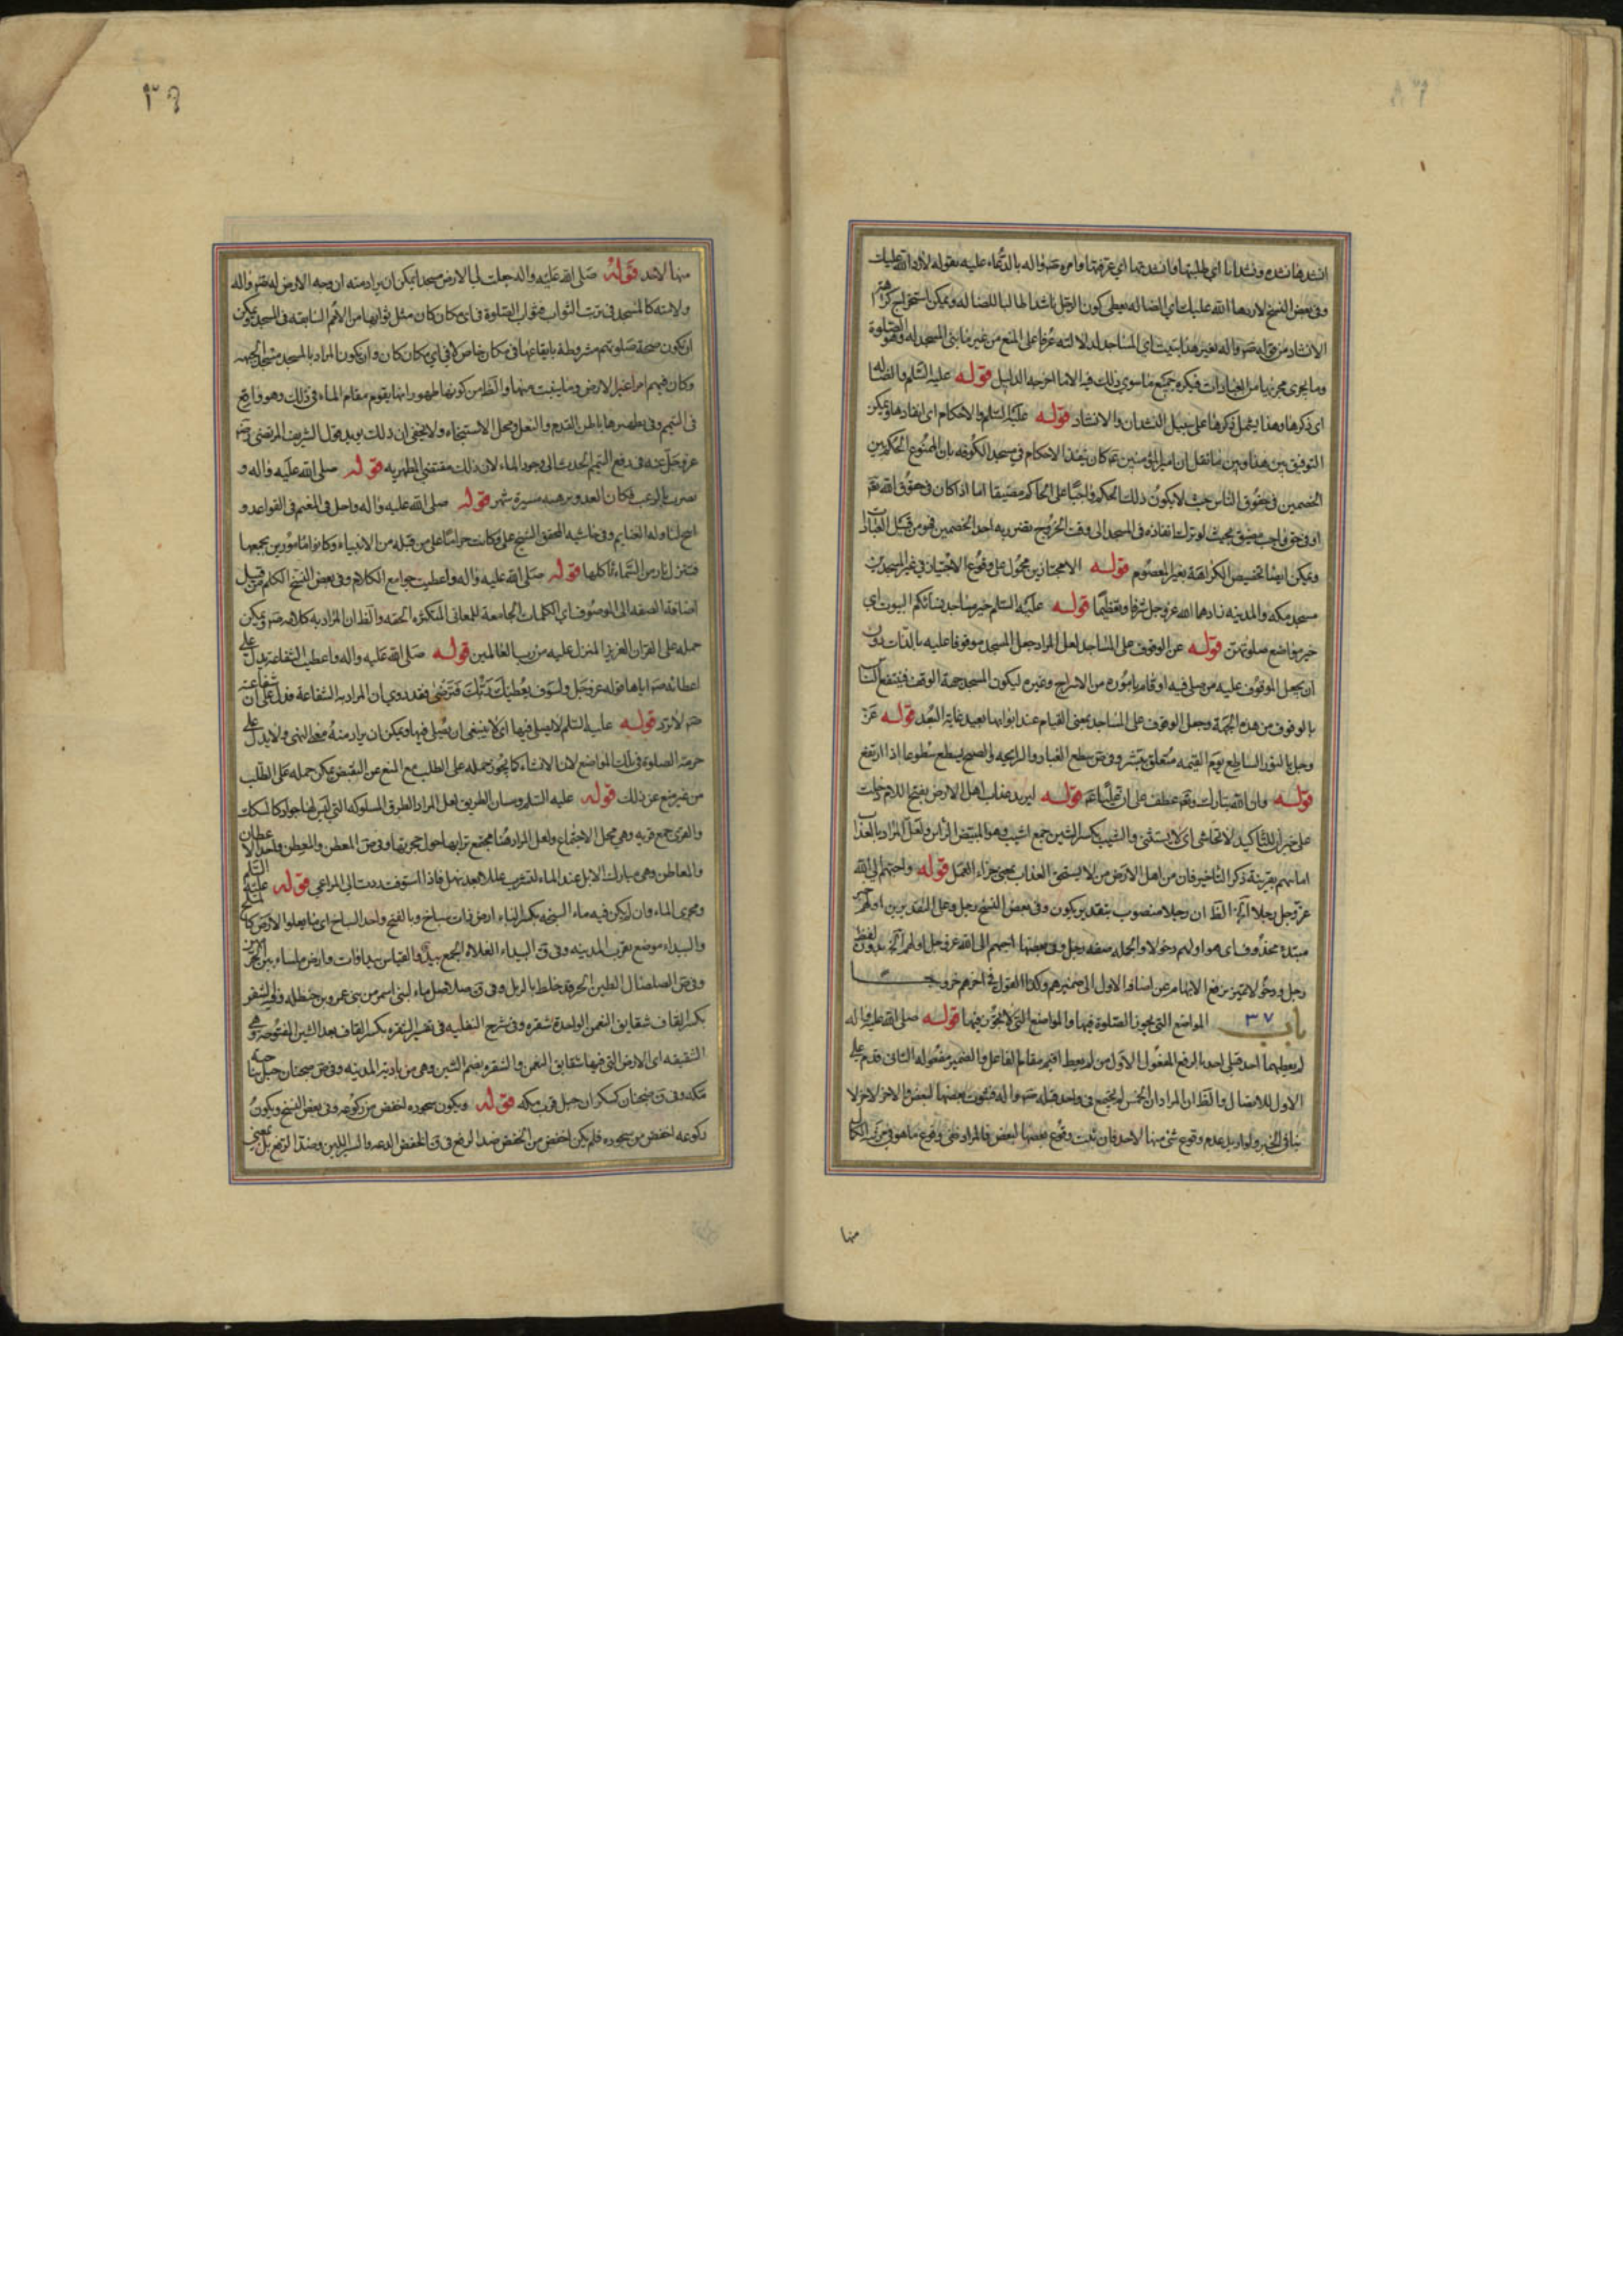 انشدها نشده ونشدانا اي طلبتها وانشدتها اي عرفتها وامره صم واله بالدعاء عليه بقوله لاردها الله عليك
وفي بعض النسخ لاردها الله عليك اي الضاله يعطي كون الرجل ناشدا طالبا للضاله ويمكن استخراج كراهة
الانشاد من قوله صم واله لغير هذا بنيت اي المساجد لدلالته عرفا على المنع من غير ما بني المسجد له وهو الصلوة
وما يجري مجريها من العبادات فيكره جميع ما سوي ذلك فيه الا ما اخرجه الدليل قوله عليه السلم والضاله
اي ذكرها وهذا يشمل ذكرها على سبيل النشدان والانشاد قوله عليه السلم والاحكام اي انفاذها ويمكن
التوفيق بين هذا وبين ما نقل ان امير المؤمنين ع كان ينفذ الاحكام في مسجد الكوفه بان الممنوع الحكم بين
الخصمين في حقوق الناس حيث لا يكون ذلك الحكم واجبا على الحاكم مضيقا اما اذا كان في حقوق الله تع
او في حق واجب مضيق بحيث لو ترك انفاذه في المسجد الى وقت الخروج تضرر به احد الخصمين فهو من قبيل العبادات
ويمكن ايضا تخصيص الكراهة بغير المعصوم قوله الا مجتازين محمول على وقوع الاجتياز في غير المسجدين
مسجد مكه والمدينه زادهما الله عز وجل شرفا وتعظيما قوله عليه السلم خير مساجد نسائكم البيوت اي
خير مواضع صلوتهن قوله عن الوقوف على المساجد لعل المراد جعل المسجد موقوفا عليه بالذات دون
ان يجعل الموقوف عليه من صلى فيه او قام باموره من الاسراج وغيره ليكون المسجد جهة الوقف فينتفع الناس
بالوقوف من هذه الجهة وجعل الوقوف على المساجد بمعنى القيام عند ابوابها بعيد غاية البعد قوله عز
وجل بالنور الساطع يوم القيمه متعلق ببشر وفي ص سطع الغبار والرايحه والصبح يسطع سطوعا اذا ارتفع
قوله وان الله تبارك وتعالى عطف على ان عليا ع قوله ليريد عذاب اهل الارض بفتح اللام دخلت
على خبر ان للتاكيد لا تحاشي اي لا يستثني والشيب بكسر الشين جمع اشيب وهو المبيض الراس ولعل المراد بالعذاب
امانتهم بقرينة ذكر التاخير فان من اهل الارض من لا يستحق العذاب بمعنى جزاء العمل قوله واحبهم الى الله
عز وجل رجلا الظ ان رجلا منصوب بتقدير يكون وفي بعض النسخ رجل وعلى التقديرين
مبتداء محذوف اي هو اولهم دخولا والجمله صفه رجل وفي بعضها احبهم الى الله عز وجل اولهم بدون لفظ
رجل ودخولا تمييز يرفع الابهام عن اضافه الاول الى ضميرهم وكذا القول في اخرهم خروجا
باب ٣٧ المواضع التي يجوز الصلوة فيها والمواضع التي لا يجوز فيها قوله صلى الله عليه واله
لم يعطهما احد قبلي احد بالرفع المفعول الاول من لم يعط اقيم مقام الفاعل والضمير مفعوله الثاني قدم على
الاول للاتصال والظ ان المراد ان الخمس لم يجتمع في واحد قبله صم واله فثبوت بعضها لبعض والاخر لاخر لا
ينافي الخبر ولو اريد عدم وقوع شئ منها لاحد فان ثبت وقوع بعضها لبعض فالمراد نفي وقوع ما هو في مرتبة الكمال
منها
٣٩
منها لاحد قوله صلى الله عليه واله جعلت لي الارض مسجدا يمكن ان يراد منه ان وجه الارض له صم واله
ولامته كالمسجد في ترتب الثواب فثواب الصلوة في اي مكان كان مثل ثوابها من الامم السابقه في المسجد ويمكن
ان يكون صحة صلوتهم مشروطة بايقاعها في مكان خاص لا في اي مكان كان وان يكون المراد بالمسجد مسجد الجبهه
وكان فيهم امرا غير الارض وما ينبت منها والظ من كونها طهورا انها يقوم مقام الماء في ذلك وهو واقع
في التيمم وفي تطهيرها باطن القدم والنعل ومحل الاستنجاء ولا يخفى ان ذلك يويد قول الشريف المرتضى رضي
عز وجل عنه في رفع التيمم الحدث الى وجود الماء لان ذلك مقتضى المطهريه قوله صلى الله عليه واله و
نصرت بالرعب فكان العدو يرهبه مسيرة شهر قوله صلى الله عليه واله واحل لي المغنم في القواعد و
احل لنا وله الغنايم وفي حاشيه المحقق الشيخ علي وكانت حراما على من قبله من الانبياء وكانوا مامورين بجمعها
فتنزل نار من السماء تاكلها قوله صلى الله عليه واله واعطيت جوامع الكلام وفي بعض النسخ الكلم من قبيل
اضافة الصفه الى الموصوف اي الكلمات الجامعة للمعاني المتكثره الحقه والظ ان المراد به كلامه صم ويمكن
حمله على القران العزيز المنزل عليه من رب العالمين قوله صلى الله عليه واله واعطيت الشفاعة يدل على
اعطائه صم اياها قوله عز وجل ولسوف يعطيك ربك فترضى فقد روي ان المراد به الشفاعة فدل على ان شفاعته
صم لا ترد قوله عليه السلم لا يصلى فيها اي لا ينبغي ان يصلى فيها ويمكن ان يراد منه النهي ولا يدل على
حرمة الصلوة في تلك المواضع لان الانشاء كما يجوز حمله على الطلب مع المنع من النقيض يمكن حمله على الطلب
من غير منع عن ذلك قوله عليه السلم ومسان الطريق لعل المراد الطرق المسلوكه التي
والقرى جمع قريه وهي محل الاجتماع ولعل المراد هنا مجتمع ترابها حول جحرتها وفي ص المعطن والمعطن واحد الاعطان
والمعاطن وهي مبارك الابل عند الماء لتشرب عللا بعد نهل فاذا استوفت ردت الى المراعي قوله عليه السلم
ومجرى الماء وان لم يكن فيه ماء السبخه بكسر الباء ارض ذات سباخ وبالفتح واحد السباخ اي ما يعلو الارض كالملح
والبيداء موضع بقرب المدينه وفي ق البيداء الفلاة الجمع بيد والقياس بيداوات وارض ملساء بين الحرمين
وفي ص الصلصال الطين الحر قد خلط بالرمل وفي ق صلاصل ماء لبني اسمر من بني عمرو بن حنظله وفي الشقر
بكسر القاف شقايق النعمن الواحدة شقره وفي شرح النفليه في تفسير الشقره بكسر القاف بعد الشين المفتوحه هي
الشقيقه اي الارض التي فيها شقايق النعمن والشقره بضم الشين وهي من بادية المدينه وفي ص ضجنان جبل بناحية
مكه وفي ق ضجنان كسكران جبل قرب مكه قوله ويكون سجوده اخفض من ركوعه وفي بعض النسخ ويكون
ركوعه اخفض من سجوده فلم يكن اخفض من الخفض ضد الرفع في ق الخفض الدعه والسير اللين وضد الرفع بل بمعنى